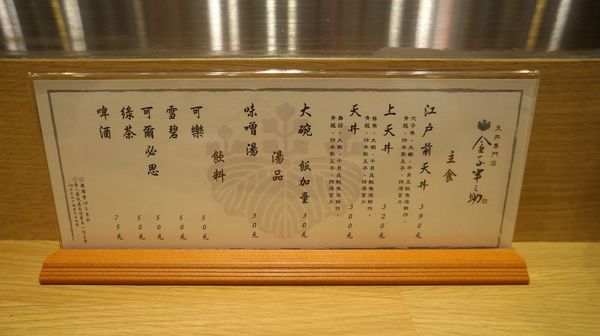 天丼專門店
金子半之助
主食
江戶前天丼 390元
上天丼 320元
天丼 300元
大碗 飯加量 30元
湯品
味噌湯 30元
飲料
可樂 50元
雪碧 50元
可爾必思 50元
綠茶 50元
啤酒 75元